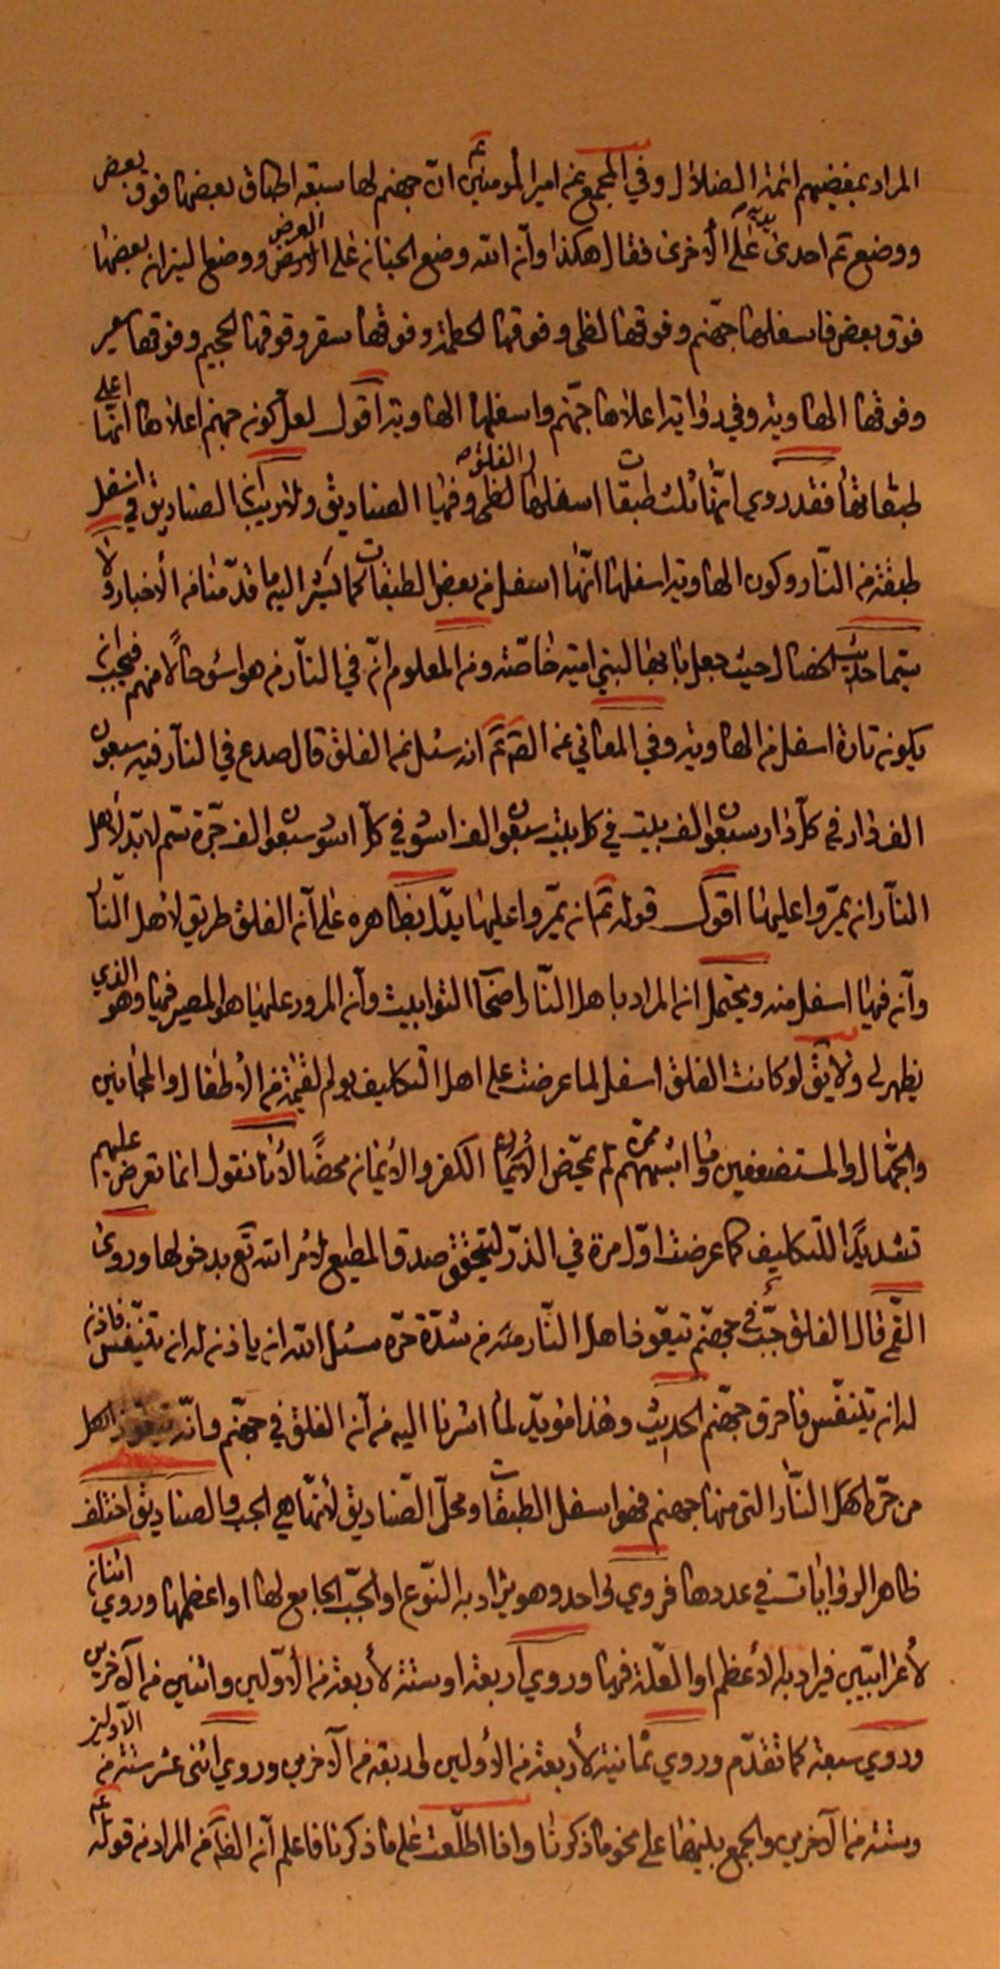 المراد ببعضهم ائمة الضلال وفي المجمع عن امير المؤمنين ع ان جهنم لها سبعة اطباق بعضها فوق بعض
ووضع ع احدى يديه على الأخرى فقال هكذا وأن الله وضع الجنان على العرض ووضع النيران بعضها
فوق بعض فاسفلها جهنم وفوقها لظى وفوقها الحطمة وفوقها سقر وفوقها الجحيم وفوقها سعير
وفوقها الهاوية وفي رواية اعلاها جهنم واسفلها الهاوية اقول لعل كون جهنم اعلاها انها اعلى
طبقاتها فقد روي انها ثلث طبقات اسفلها الفلق وفيها الصناديق ولا ريب ان الصناديق في اسفل
طبقة من النار وكون الهاوية اسفلها انها اسفل من بعض الطبقات كما يشير اليه ما قدمنا من الأخبار ولا
سيما حديث الخصال حيث جعل بابها لبني امية خاصة ومن المعلوم ان في النار من هو اسوء حالا منهم فيجب ان
يكون تارة اسفل من الهاوية وفي المعاني عن الصادق ع انه سئل عن الفلق قال صدع في النار فيه سبعون
الف دار في كل دار سبعون الف بيت في كل بيت سبعون الف اسود في كل اسود سبعون الف جرة سم لابد لأهل
النار ان يمروا عليها اقول قوله ع ان يمروا عليها يدل بظاهره على أن الفلق طريق لأهل النار
وأن فيها اسفل منه ويحتمل ان المراد باهل النار اصحاب التوابيت وأن المرور عليها هو المصير فيها وهو الذي
يظهر لي ولا يق لو كانت الفلق اسفل لما عرضت على اهل التكاليف يوم القيمة من الأطفال والمجانين
والجهال والمستضعفين وما اشبههم ممن لم يمحض الأيمان الكفر والأيمان محضا لأنا نقول انما تعرض عليهم
تشديدا للتكليف كما عرضت اول مرة في الذر ليتحقق صدق المطيع لأمر الله تع بدخولها وروى
القمي قال الفلق جب في جهنم تتعوذ اهل النار منه من شدة حره سئل الله ان ياذن له ان يتنفس فاذن
له ان يتنفس فاحرق جهنم الحديث وهذا مؤيد لما اشرنا اليه من أن الفلق في جهنم وانه يتعوذ اهل
من حره اهل النار التي منها جهنم فهو اسفل الطبقات ومحل الصناديق لأنها هي الجب والصناديق اختلف
ظاهر الروايات في عددها فروي واحد وهو يراد به النوع او الجب الجامع لها او اعظمها وروي اثنان
لأعرابيين فيراد به الأعظم او العلة فيها وروي اربعة او ستة لأربعة من الأولين واثنين من الآخرين
وروي سبعة كما تقدم وروي ثمانية لأربعة من الأولين واربعة من الآخرين وروي اثنى عشر ستة من الأولين
وستة من الآخرين والجمع بينها على نحو ما ذكرنا واذا اطلعت على ما ذكرنا فاعلم أن الظ من المراد من قوله ع